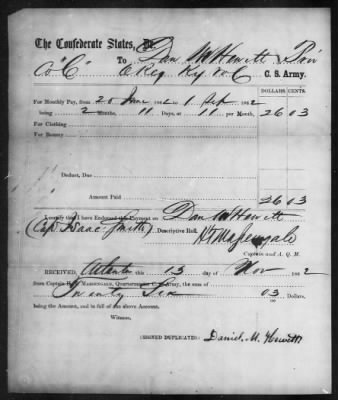 The Confederate States, Dr.
To Dan M Hewitt Priv
Co "C" Ky C. S. Army.
DOLLARS. CENTS.
For Monthly Pay, from 20 June 1862 to 1 Sep 1862
being 2 Months, 11 Days, at 11 per Month, 26 03
For Clothing
For Bounty
Deduct, Due
Amount Paid 26 03
I certify that I have Endorsed this payment on Dan M Hewitt
(Cap Isaac Smith) Descriptive Roll.
Massengale
Captain and A. Q. M.
RECEIVED, Atlanta this 13 day of Nov 1862
from Captain Massengale, Quartermaster C. S. Army, the sum of
Twenty Six 03/100 Dollars,
being the Amount, and in full of the above Account.
Witness,
[SIGNED DUPLICATE] Daniel. M. Hewitt